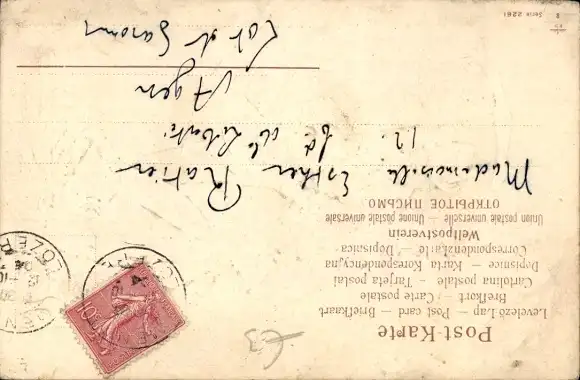 Post-Karte
Levelező-Lap — Post card — Briefkaart
Brefkort — Carte postale
Cartolina postale — Tarjeta postal
Dopisnice — Karta Korespondencyjna
Correspondenzkarte — Dopisnica
Weltpostverein
Union postale universelle — Unione postale universale
ОТКРЫТОЕ ПИСЬМО
Mademoiselle Esther Ratier
12. Bd de la Liberté.
Agen
Lot et Garonne
Serie 2261
10
£3